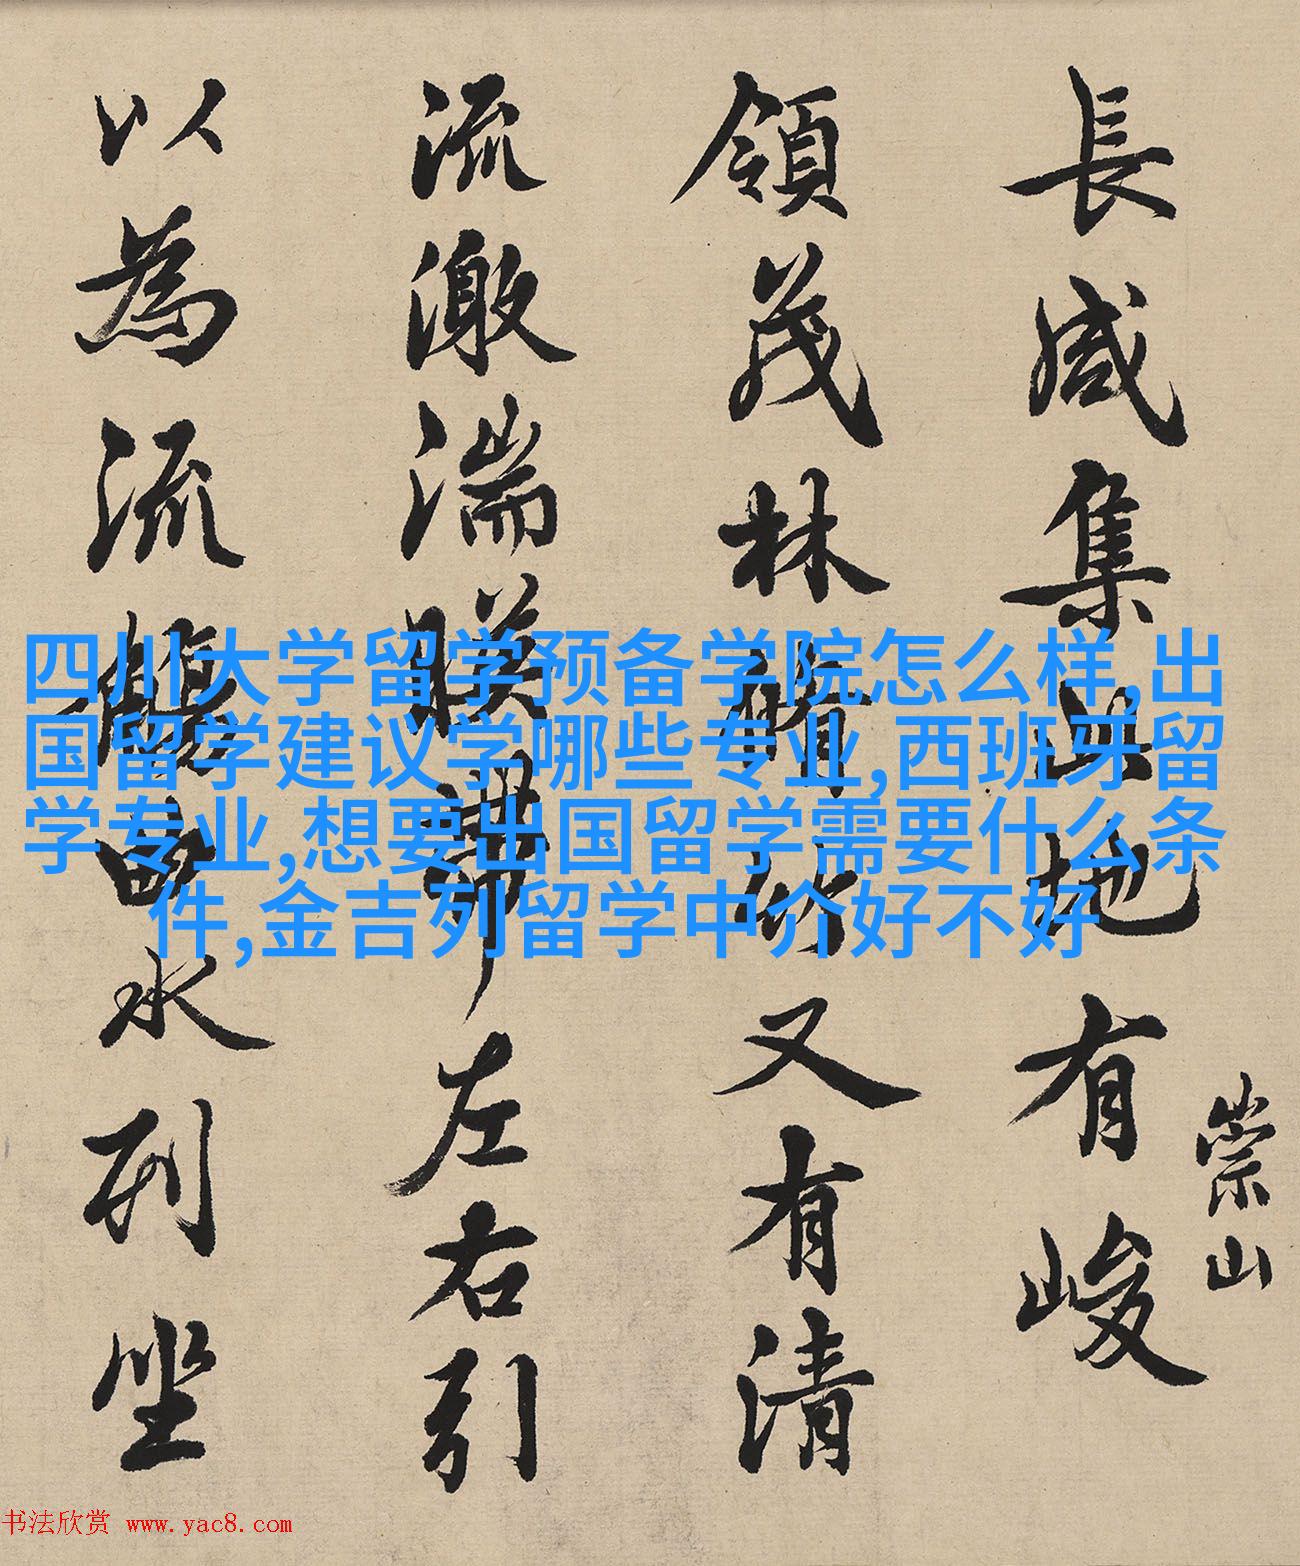 長咸集此地有峻
崇山
領茂林脩竹又有清
流激湍暎帶左右引
以為流觴曲水列坐
四川大学留学预备学院怎么样,出
国留学建议学哪些专业,西班牙留
学专业,想要出国留学需要什么条
件,金吉列留学中介好不好
书法欣赏 www.yac8.com